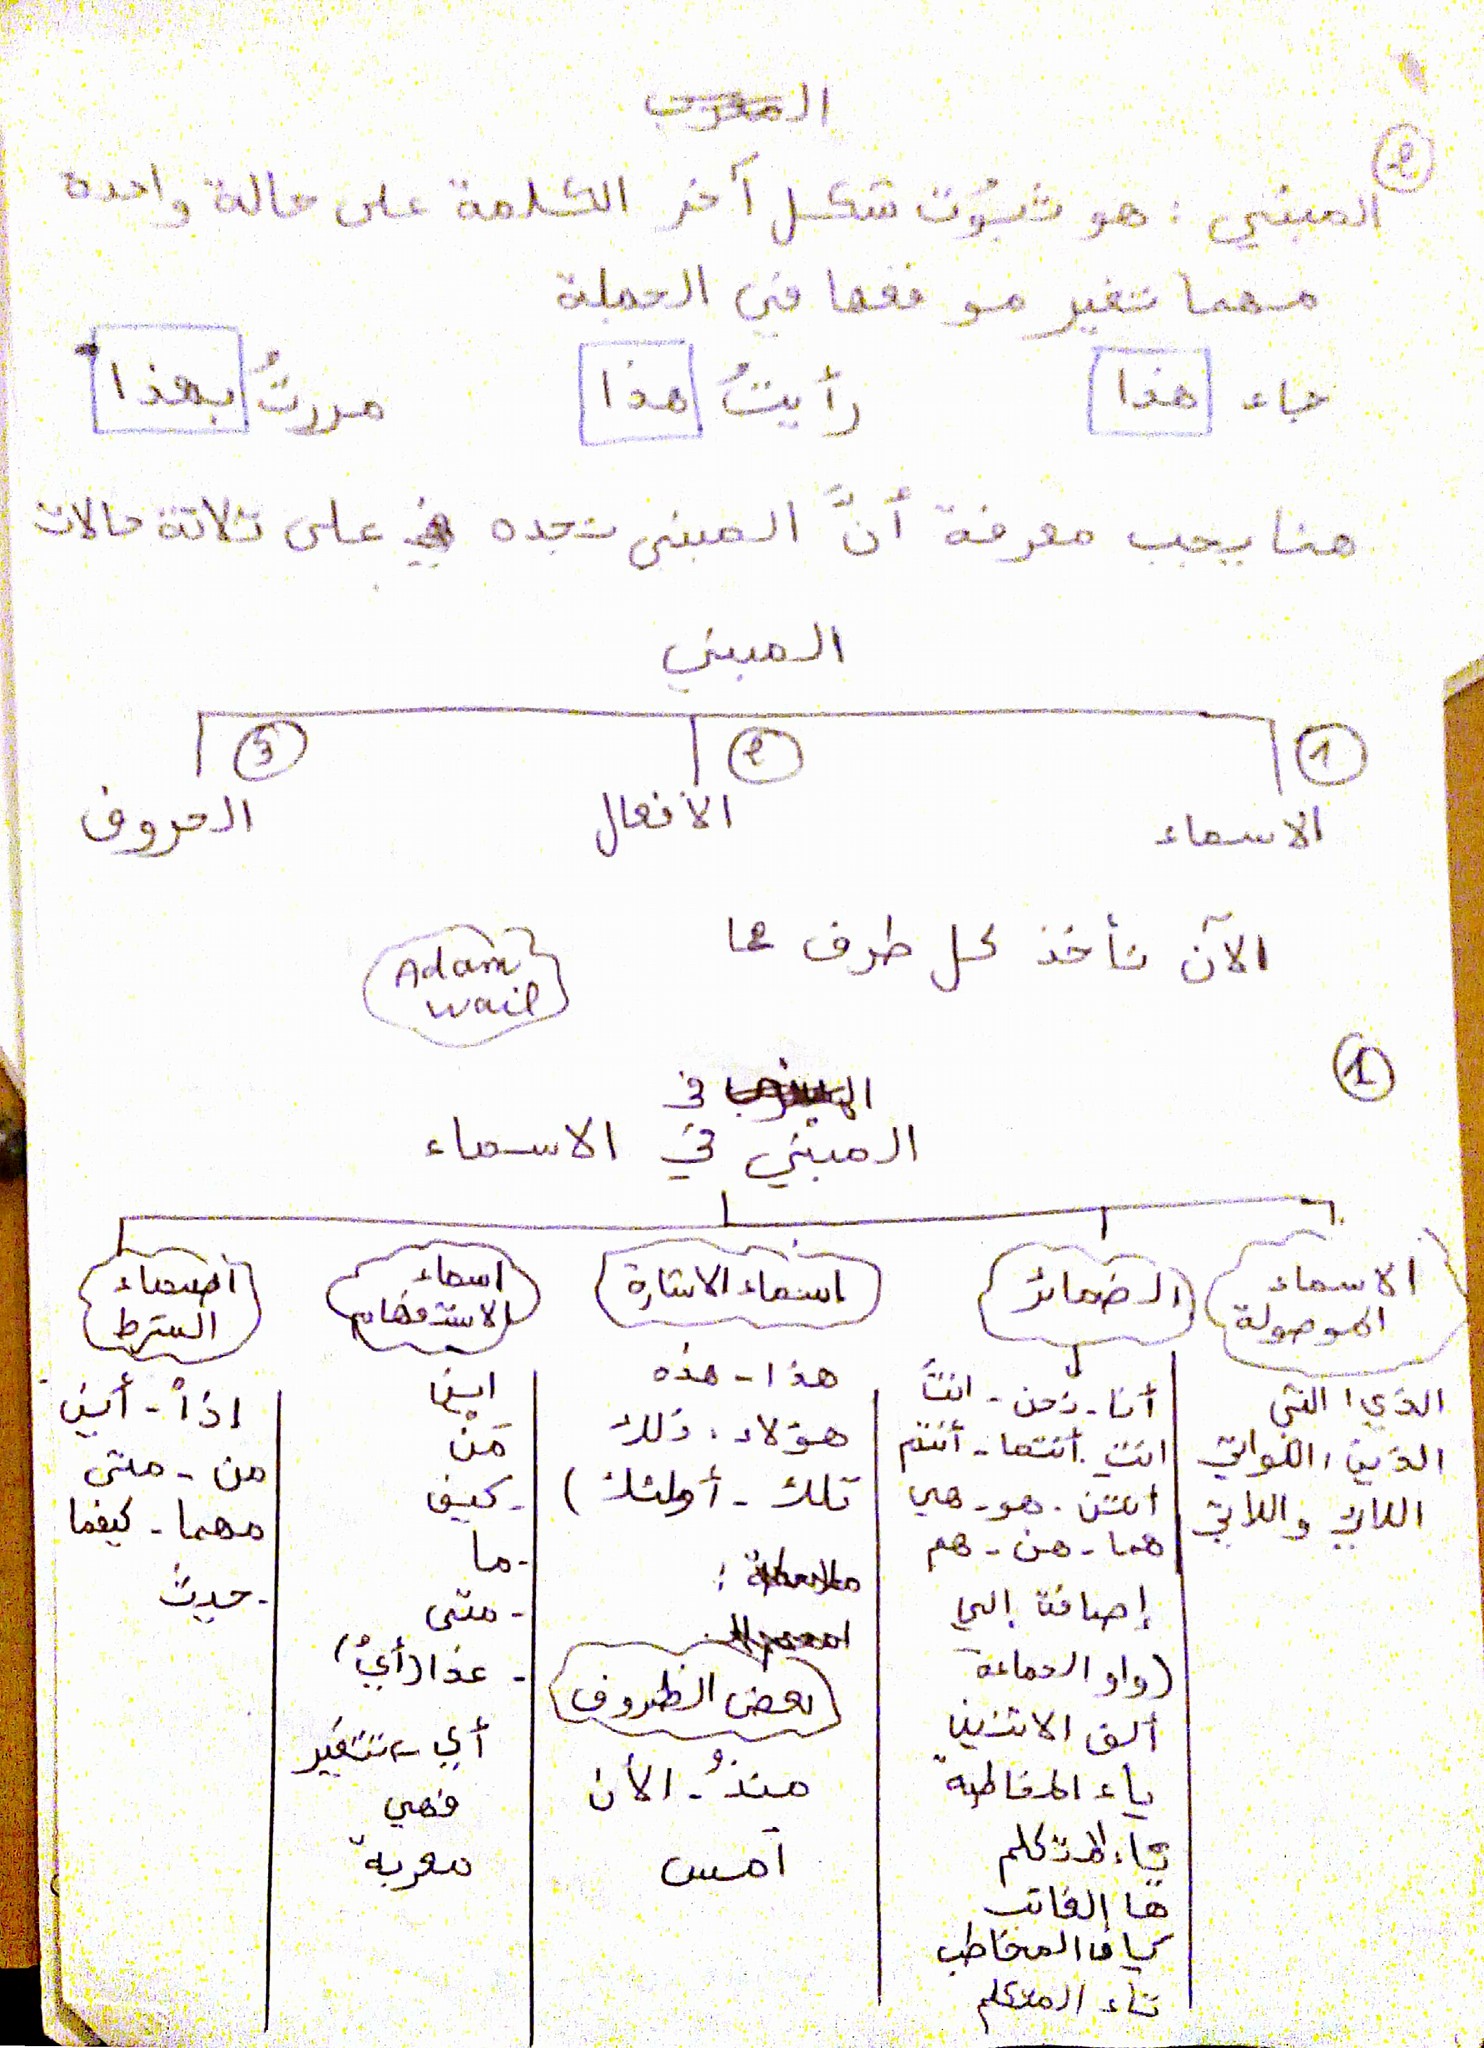 المعرب
2
المبني : هو ثبوت شكل آخر الكلمة على حالة واحدة
مهما تغير موقعها في الجملة
جاء هذا
رأيتُ هذا
مررتُ بهذا
هنا يجب معرفة أنَّ المبني تجده على ثلاثة حالات
المبني
1 2 3
الاسماء الأفعال الحروف
الآن نأخذ كل طرف عما
Adam
wail
1
في
المبني في الاسماء
الاسماء
الموصولة
الذي، التي
الذين، اللواتي
اللائي واللاتي
الضمائر
أنا - نحن - انتَ
انتِ - أنتما - أنتم
انتن - هو - هي
هما - هن - هم
إضافة إلى
(واو الجماعة
ألف الاثنين
ياء المخاطبة
ياء المتكلم
ها الغائب
كاف المخاطب
تاء المتكلم
اسماء الاشارة
هذا - هذه
هؤلاء . ذلك
تلك - أولئك )
ملاحظة :
بعض الظروف
منذُ - الأن
امس
اسماء
الاستفهام
اين
مَنْ
- كيف
- ما
- متى
- عدا (أيُ)
أي تتغير
فهي
معربة
اسماء
الشرط
إذاً - أين
من - متى
مهما - كيفما
- حيثُ